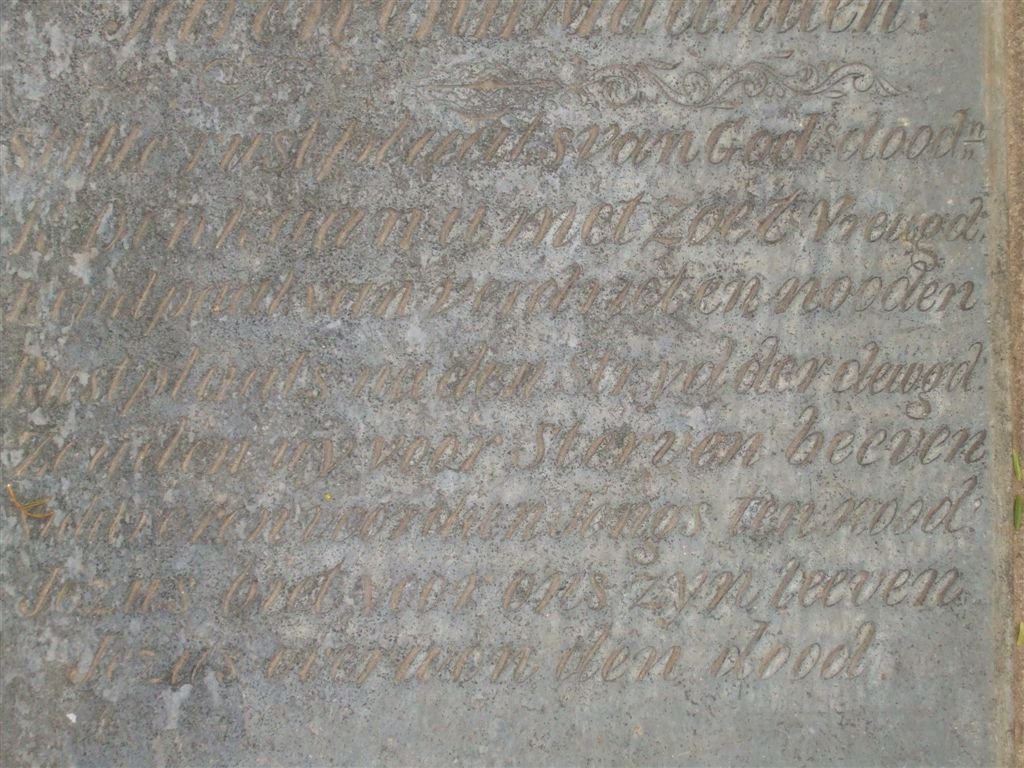 Stille rustplaats van Gods doodn
Ik Denk aan u met zoete Vreugd.
Eindpaal van verdriet en nooden
Rustplaats na den Stryd der deugd.
Zouden wy voor Sterven beeven
worden Tengs Ten nood.
Jezus liet voor ons zyn leeven
Jezus overwon den dood